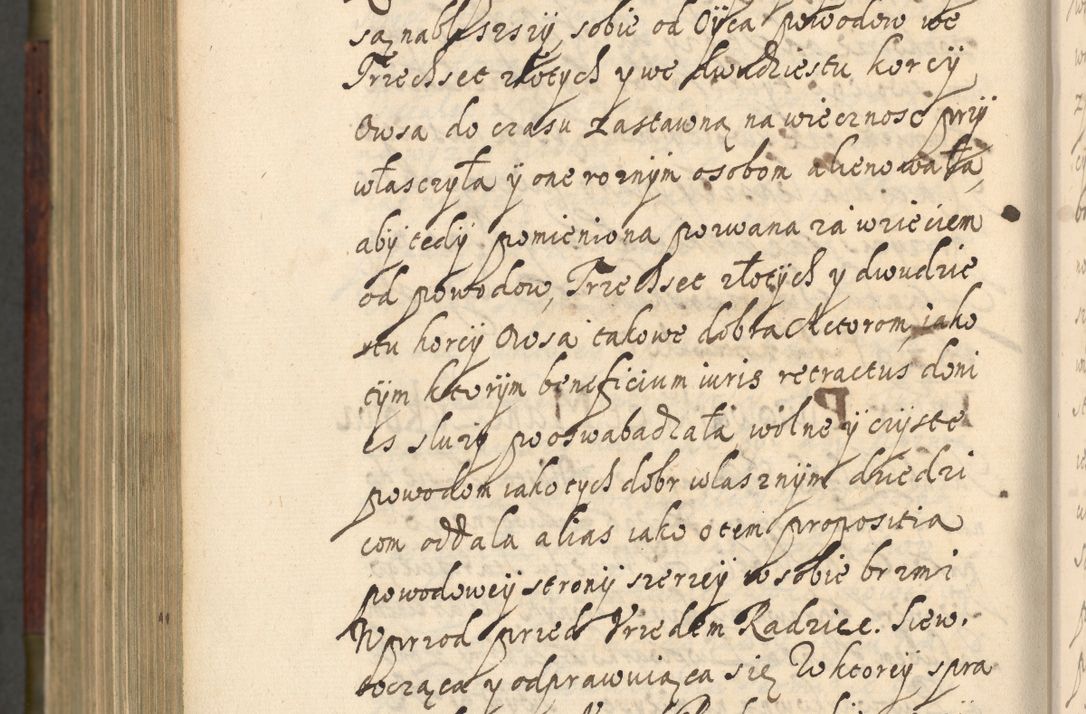 są nabliszszy sobie od Oyca powodow we
Trzechset złotych y we dwudziestu korcy
Owsa do czasu zastawną na wiecznosc przy
własczyła ÿ one roznÿm osobom alienowała,
abÿ tedÿ pomieniona pozwana za wzieciem
od powodow, Trzechset złotych y dwudzie
stu korcÿ Owsa takowe dobra Actorom, iako
tÿm ktorÿm beneficium iuris retractus doni
es służÿ pooswabadzała wolne ÿ czÿste
powodom iako tych dobr wlasznÿm dziedzi
com oddala alias iako o tem propositia
powodoweÿ stronÿ szerzeÿ w sobie brzmi
Wprzod przed Vrzedem Radziec. Siew.
tocząca y odprawuiąca się W ktoreÿ spra